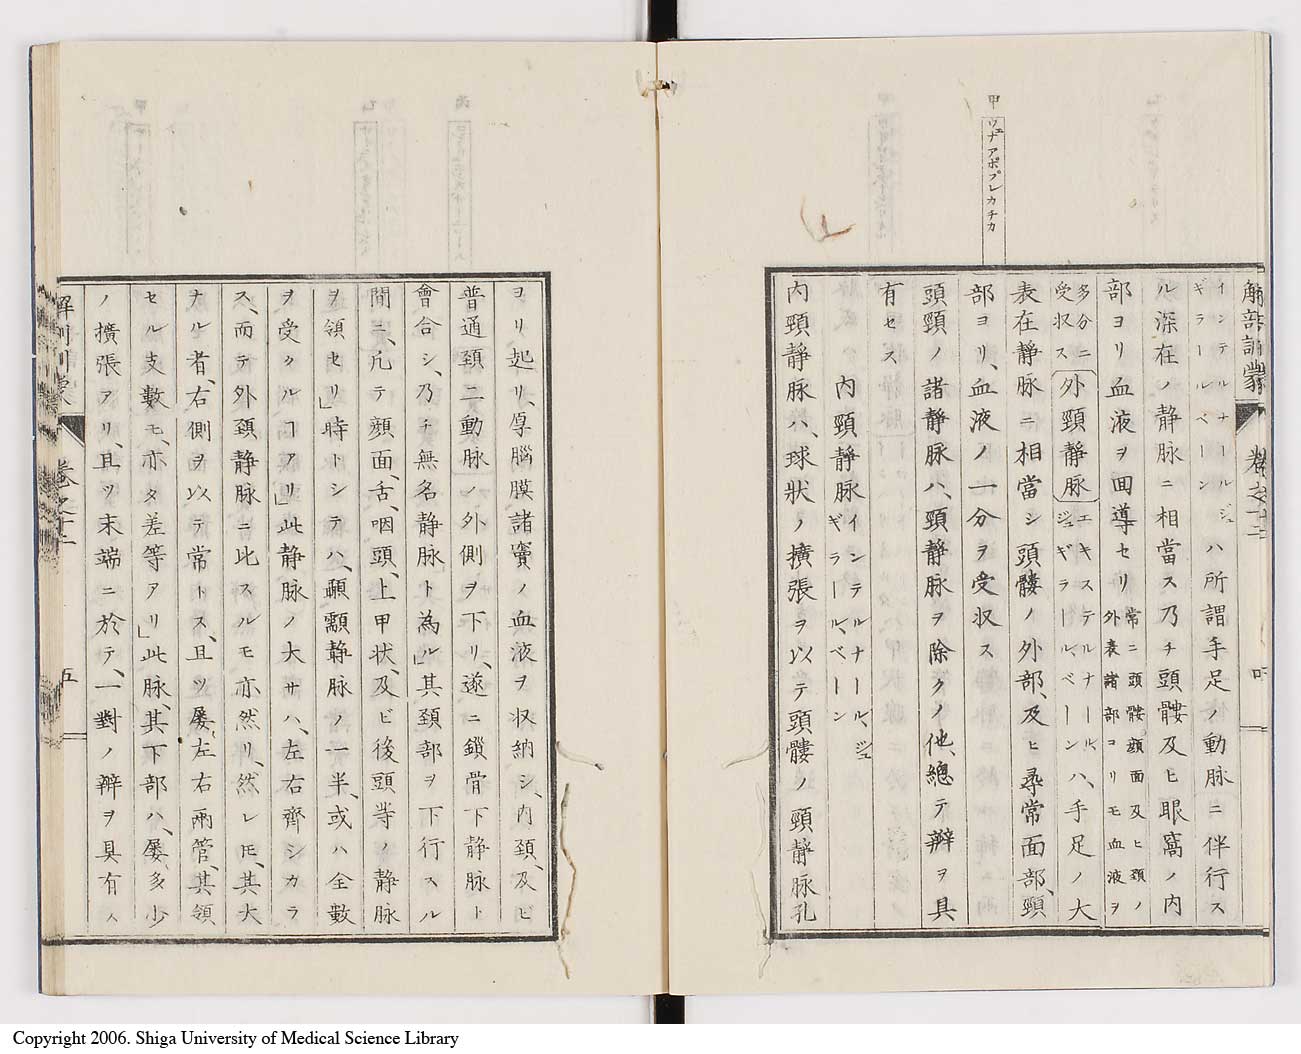 甲
ヴェナアポプレカチカ
解剖訓蒙 巻之十二 四
インテルナールジュギラールベーン ハ所謂手足ノ動脉ニ伴行ス
ル深在ノ静脉ニ相當ス乃チ頭髏及ヒ眼窩ノ内
部ヨリ血液ヲ回導セリ 常ニ頭髏顔面及ヒ頸ノ外表諸部ヨリモ血液ヲ
多分ニ受収ス 外頸静脉 エキステルナール、ジュギラール、ベーン ハ、手足ノ大
表在静脉ニ相當シ頭髏ノ外部、及ヒ尋常面部、頸
部ヨリ、血液ノ一分ヲ受収ス
頭頸ノ諸静脉ハ、頸静脉ヲ除クノ他、總テ辨ヲ具
有セス
内頸静脉 インテルナール、ジュギラール、ベーン
内頸静脉ハ、球状ノ擴張ヲ以テ頭髏ノ頸静脉孔
ヨリ起リ、厚腦膜諸竇ノ血液ヲ収納シ、内頸、及ビ
普通頸二動脉ノ外側ヲ下リ、遂ニ鎖骨下静脉ト
會合シ、乃チ無名静脉ト為ル」其頸部ヲ下行スル
間ニ、凡テ顔面、舌、咽頭、上甲状、及ビ後頭等ノ静脉
ヲ領セリ」時トシテハ、顳顬静脉ノ一半、或ハ全數
ヲ受クルコアリ」此静脉ノ大サハ、左右齊シカラ
ス、而テ外頸静脉ニ比スルモ亦然リ、然レ𪜈、其大
ナル者、右側ヲ以テ常トス、且ツ屡、左右兩管、其領
セル支數モ、亦タ差等アリ」此脉、其下部ハ、屡、多少
ノ擴張アリ、且ツ末端ニ於テ、一對ノ辨ヲ具有ス
解剖訓蒙 巻之十二 五
Copyright 2006. Shiga University of Medical Science Library